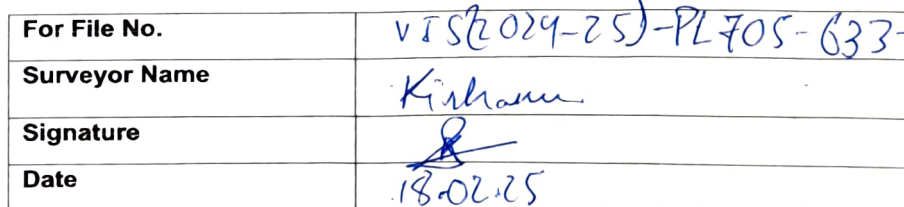 For File No. VIS(2024-25)-PL705-633-
Surveyor Name
Signature
Date 18.02.25